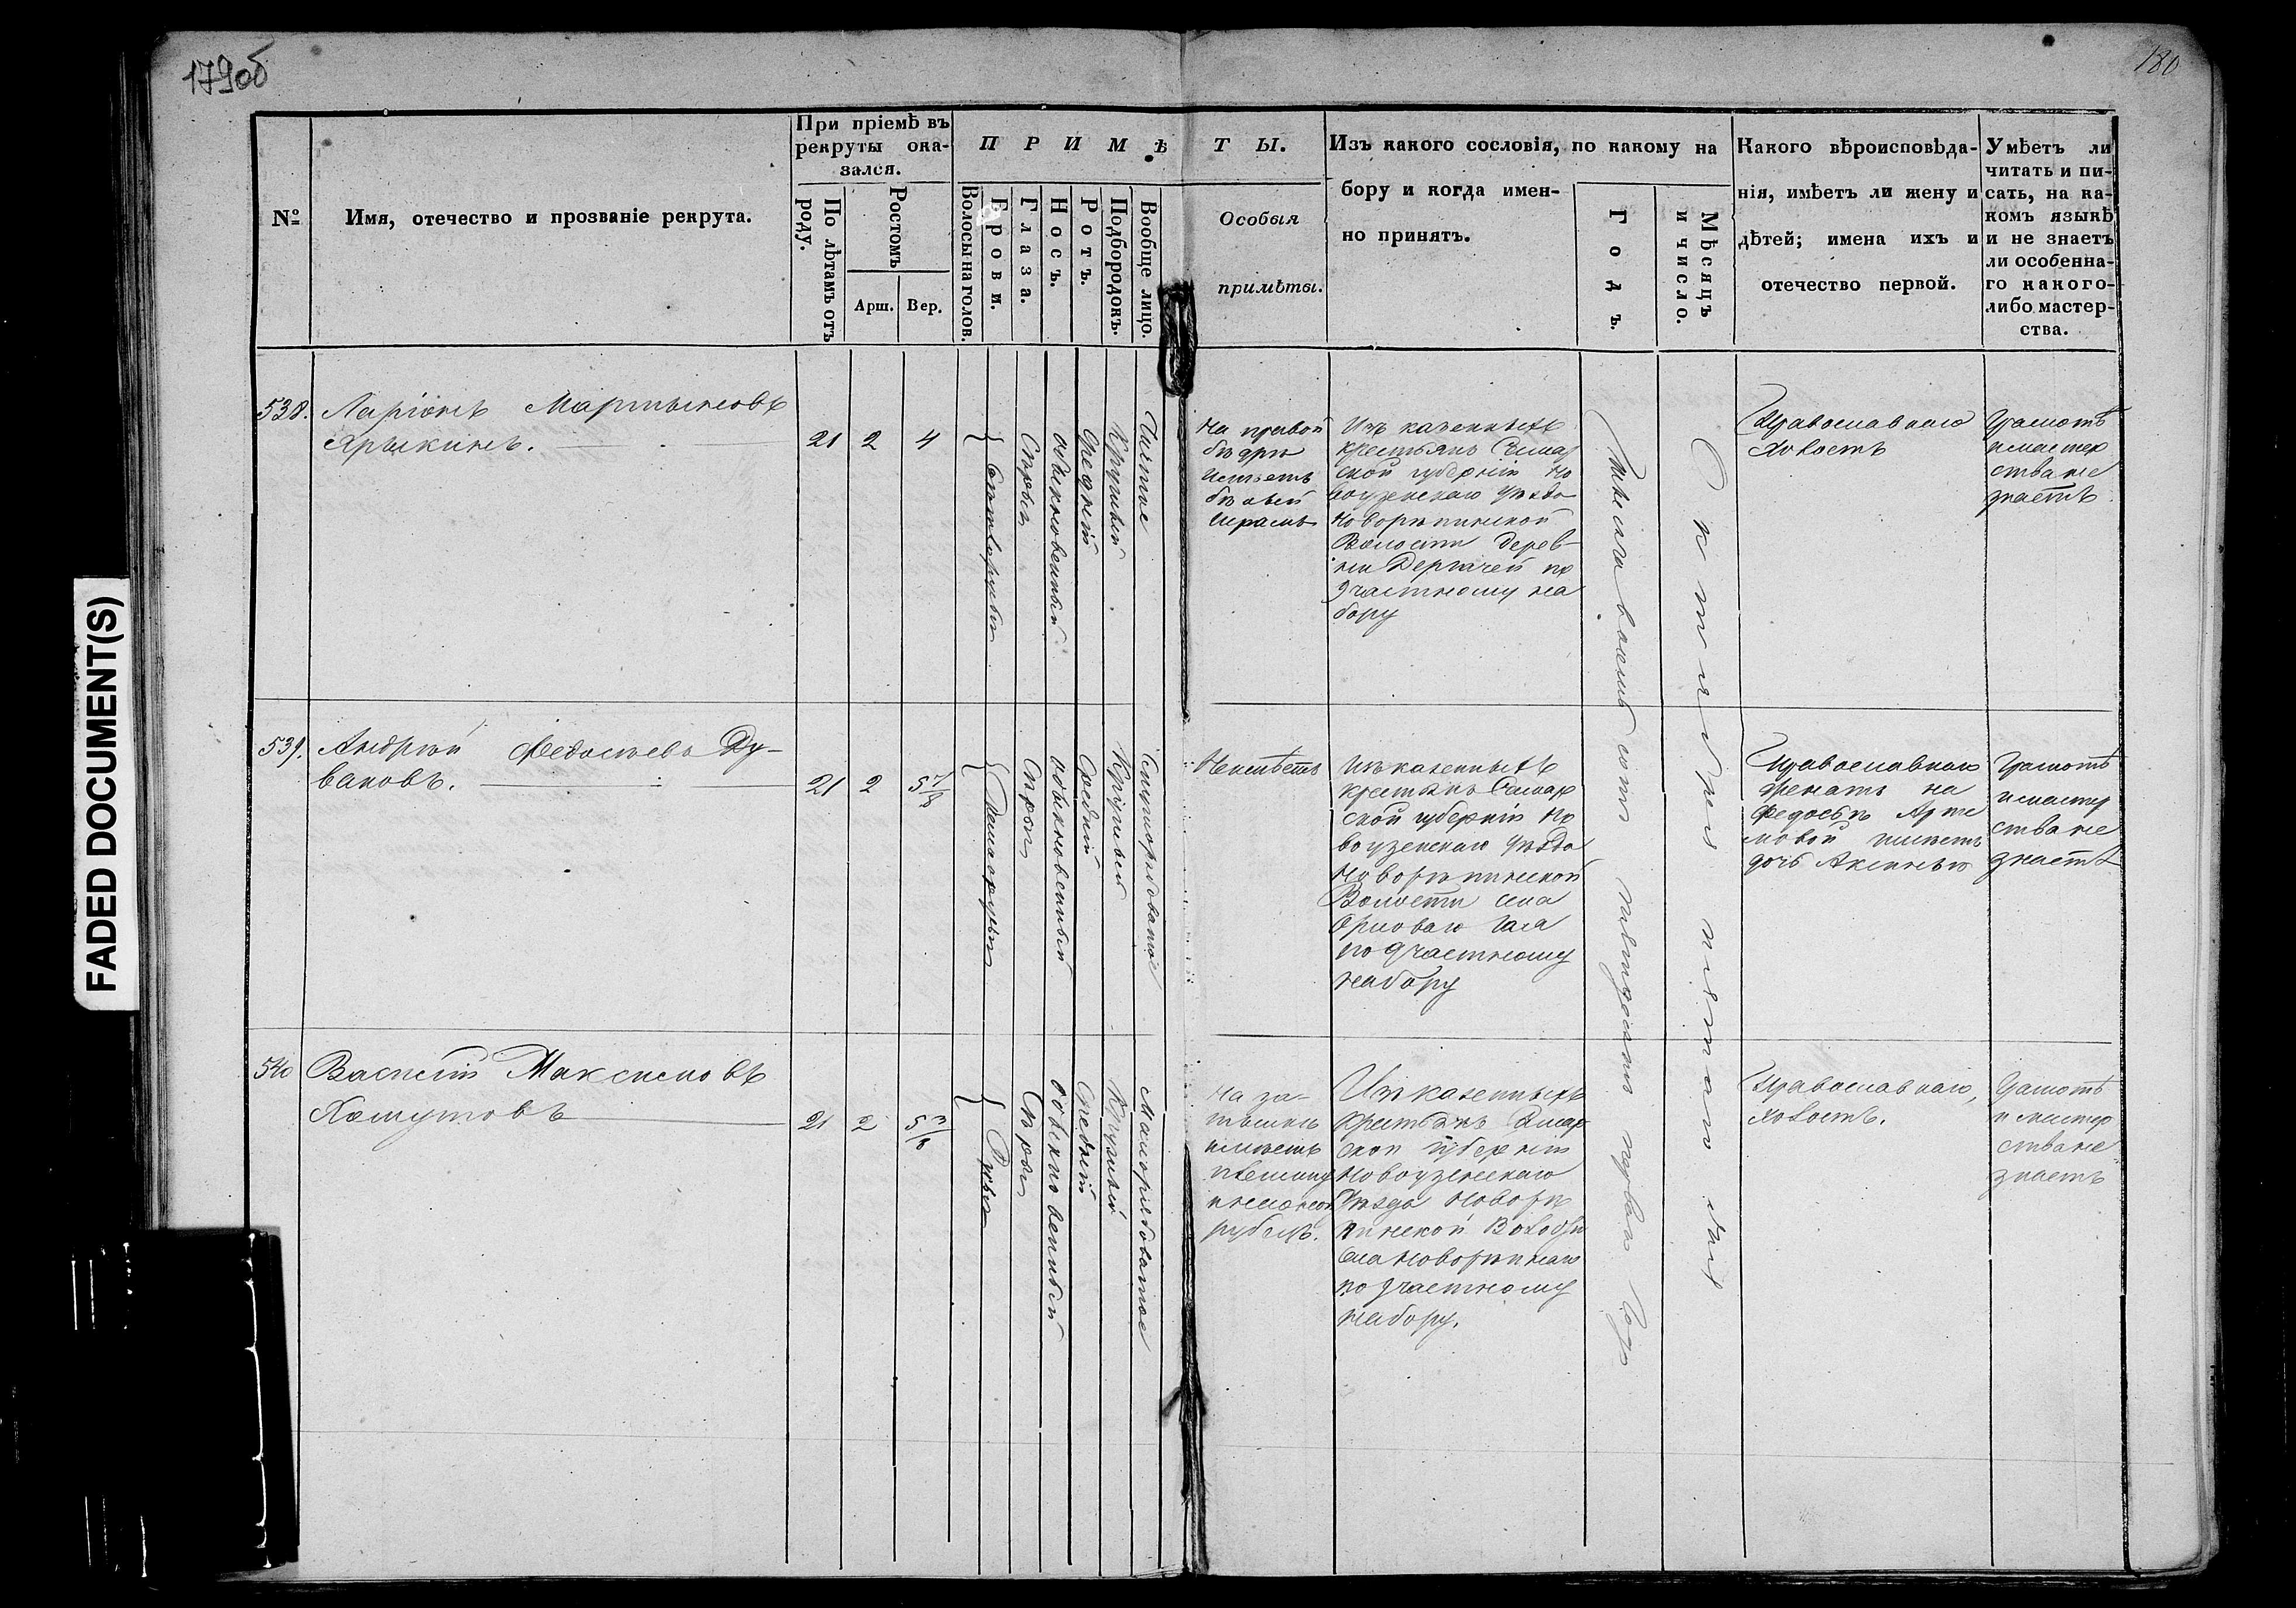 179об
180
FADED DOCUMENT(S)
№
Имя, отечество и прозваніе рекрута.
При пріемѣ въ
рекруты ока-
зался.
По лѣтамъ отъ
роду.
Ростомъ
Арш.
Вер.
ПРИМѢТЫ.
Волосы на голов.
Брови.
Глаза.
Носъ.
Ротъ.
Подбородокъ.
Вообще лицо.
Особыя
примѣты.
Изъ какого сословія, по какому на
бору и когда имен-
но принятъ.
Годъ.
Мѣсяцъ
и число.
Какого вѣроисповѣда-
нія, имѣетъ ли жену и
дѣтей; имена ихъ и
отечество первой.
Умѣетъ ли
читать и пи-
сать, на ка-
комъ языкѣ
и не знаетъ
ли особенна-
го какого-
либо мастер-
ства.
538.
Ларіонъ Мартыновъ
Ярыкинъ.
21
2
4
Свѣтлорусыя
Сѣрыя
обыкновенный
Средній
Круглый
Чистое
На правой
бедрѣ
имѣетъ
бѣлый
шрамъ
Изъ казенныхъ
крестьянъ Самар
ской губерніи Но
воузенскаго уѣзда
Новорѣпинской
Волости дерев-
ни Дергачей по
участному на
бору
Православнаго
Холостъ
Грамотѣ
и мастер
ства не
знаетъ
539.
Андрей Федосѣевъ Ду-
вановъ.
21
2
5 7/8
Темнорусыя
Сѣрыя
обыкновенный
Средній
Круглый
Смугорябоватое
Неимѣетъ
Изъ казенныхъ
крестьянъ Самар
ской губерніи Но
воузенскаго уѣзда
Новорѣпинской
Волости села
Орловаго Гая
по участному
набору
Православнаго
женатъ на
Федосьѣ Арте
мовой имѣетъ
дочь Аксинью
Грамотѣ
и мастер
ства не
знаетъ
540
Василій Максимовъ
Хомутовъ
21
2
5 3/8
Русыя
Сѣрыя
обыкновенный
Средній
Круглый
Малорябоватое
На за-
тылкѣ
имѣетъ
рубецъ.
Изъ казенныхъ
крестьянъ Самар
ской губерніи
Новоузенскаго
уѣзда Новорѣ
пинской Волости
села Новорѣпнаго
по участному
набору.
Православнаго,
холостъ.
Грамотѣ
и мастер
ства не
знаетъ
Тысяча восемь сотъ пятьдесятъ перваго года
Октября пятаго дня